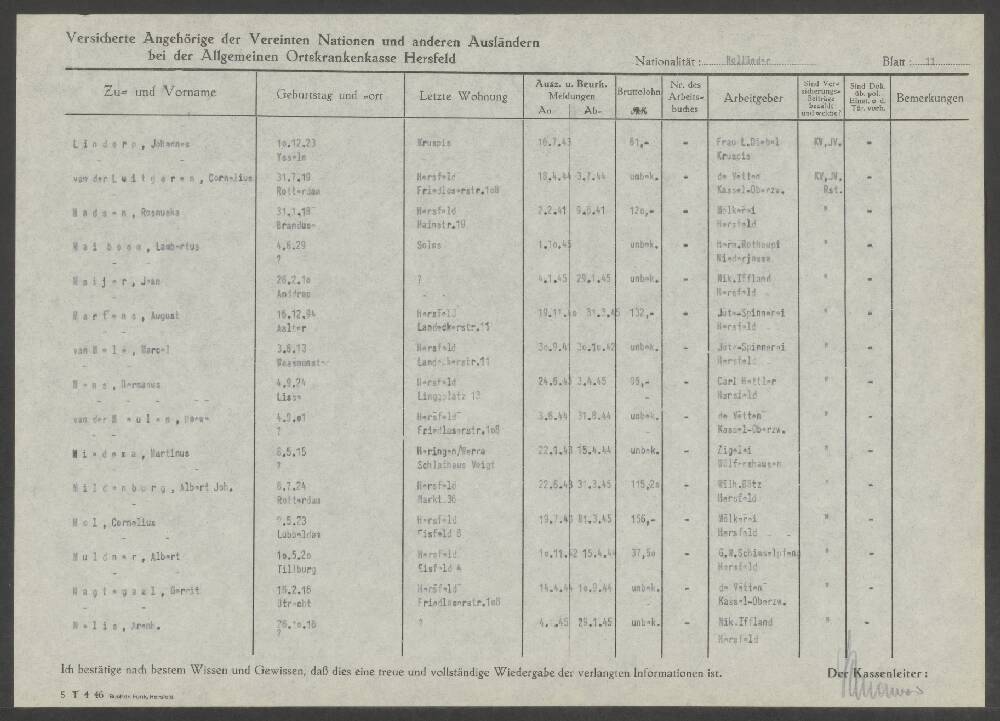 Versicherte Angehörige der Vereinten Nationen und anderen Ausländern
bei der Allgemeinen Ortskrankenkasse Hersfeld
Nationalität: Holländer Blatt: 11
Zu- und Vorname Geburtstag und -ort Letzte Wohnung Ausz. u. Beurk. Meldungen An- Ab- Bruttolohn Nr. des Arbeits- buches Arbeitgeber Sind Ver- sicherungs- Beiträge bezahlt und welche? Sind Dok. üb. pol. Hinst. o. d. Tär. vorh. Bemerkungen
Lindorp, Johannes 10.12.23 Kruspis 16.7.43 81,- - Frau L.Diebel KV,JV. -
Kruspis
van der Luitgaren, Cornelius 31.7.19 Hersfeld 18.4.44 3.7.44 unbek. - de Vetten KV,JV. -
Rotterdam Friedloserstr.108 Kassel-Oberzw. Rst.
Madsen, 31.1.18 Hersfeld 2.2.41 9.8.41 120,- - Molkerei " -
Hainstr.19 Hersfeld
Lambertus 4.6.29 Solms 1.10.45 unbek. - Herm.Rothaupt " -
- - ? Niederjossa
Meijer, Jean 26.2.10 ? 4.1.45 29.1.45 unbek. - Nik.Iffland " -
- - Hersfeld
Martens, August 16.12.94 Hersfeld 19.11.40 31.3.45 132,- - Jute-Spinnerei " -
Aalter Landeckerstr.11 Hersfeld
van Mele, Marcel 3.8.13 Hersfeld 30.9.41 30.10.42 unbek. - Jute-Spinnerei " -
Waasmunster Landeckerstr.11 Hersfeld
Mens, Hermanus 4.9.24 Hersfeld 24.6.43 3.4.45 95,- - Carl Hettler " -
Lisse Linggplatz 13 - Hersfeld
van der Meulen, 4.9.01 Hersfeld 3.8.44 31.8.44 unbek. - de Vetten " -
- - ? Friedloserstr.108 Kassel-Oberzw.
Miedema, Martinus 8.5.15 Heringen/Werra 22.1.43 15.4.44 unbek. - Zigelei " -
- - ? Schlathaus Voigt Wölfershausen
Mildenburg, Albert Joh. 8.7.24 Hersfeld 22.6.43 31.3.45 115,20 - Wilh.Götz " -
Rotterdam Markt 36 Hersfeld
Mol, Cornelius Hersfeld 19.7.43 31.3.45 156,- - Molkerei " -
Lobbeldam Eisfeld 8 Hersfeld
Muldner, Albert 10.5.20 Hersfeld 10.11.42 15.4.44 37,50 - G.W.Schimmelpfeng " -
- - Tillburg Eisfeld 4 Hersfeld
Nagtegaal, Gerrit 15.2.16 Hersfeld 14.4.44 10.9.44 unbek. - de Vetten " -
- - Utrecht Friedloserstr.108 Kassel-Oberzw.
Nelis, 26.10.16 ? 29.1.45 unbek. - Nik.Iffland " -
? Hersfeld
Ich bestätige nach bestem Wissen und Gewissen, daß dies eine treue und vollständige Wiedergabe der verlangten Informationen ist. Der Kassenleiter:
5 T 4 46